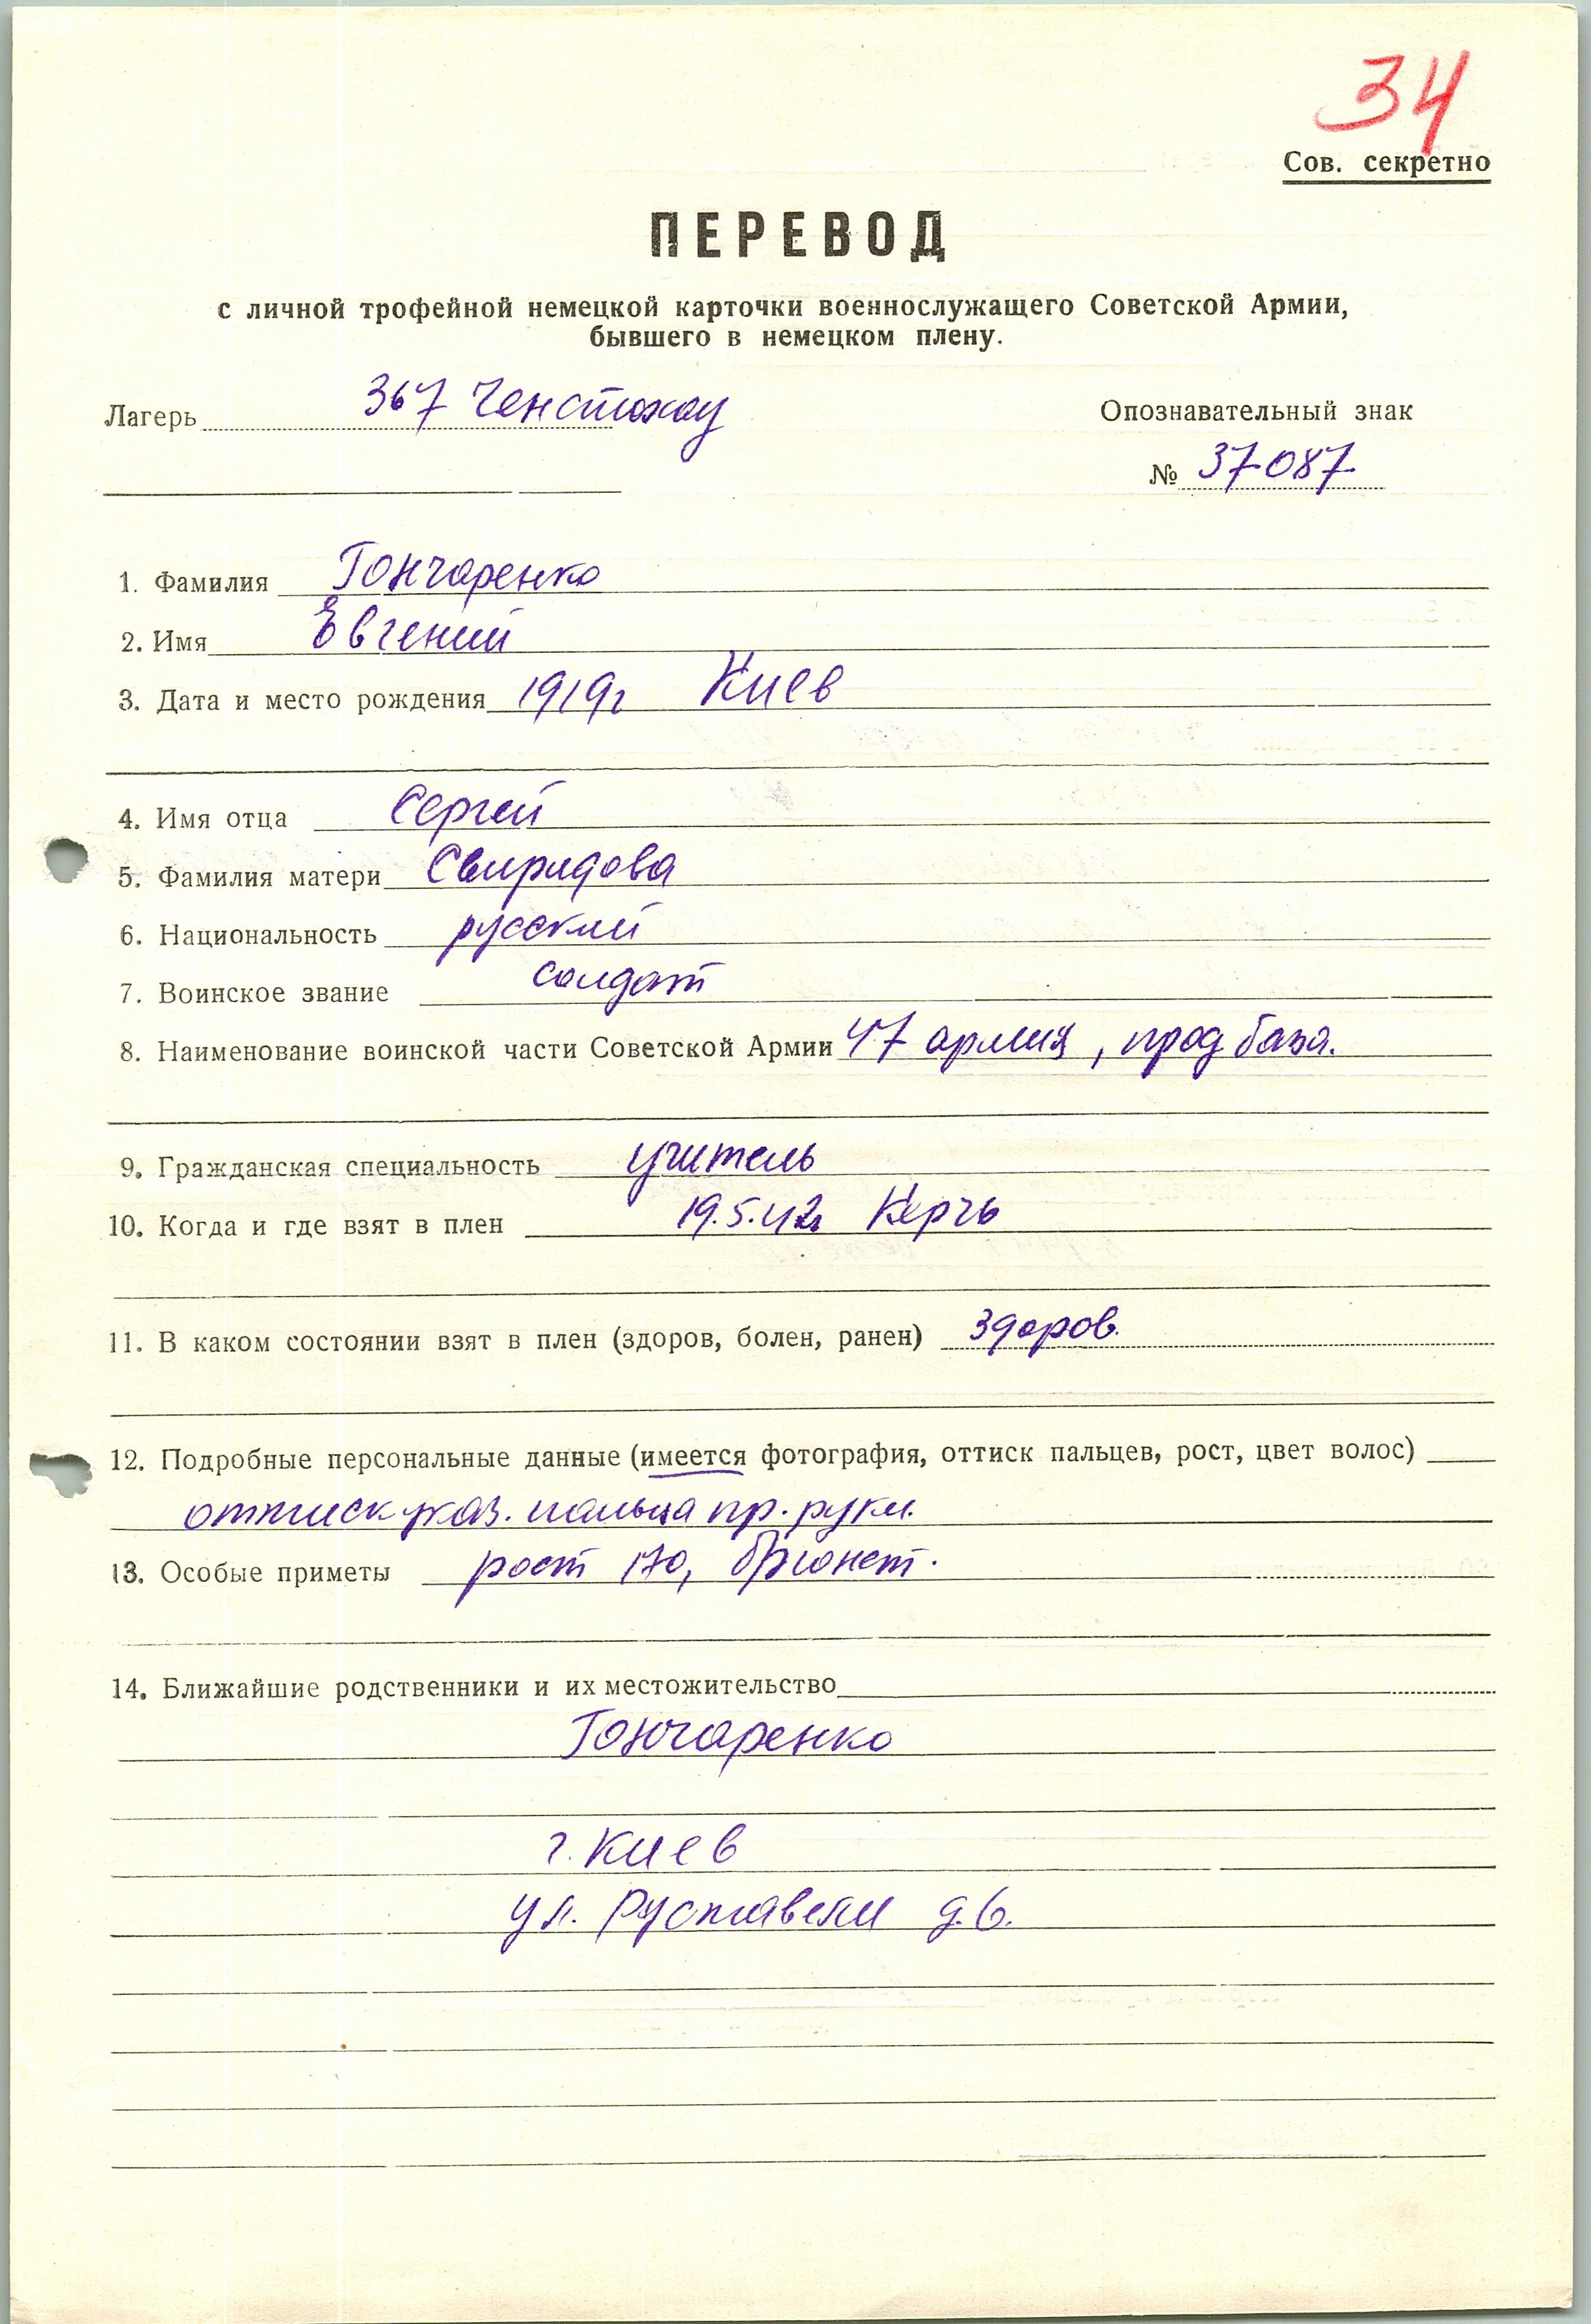 34
Сов. секретно
ПЕРЕВОД
с личной трофейной немецкой карточки военнослужащего Советской Армии,
бывшего в немецком плену.
Лагерь 367 Ченстохау
Опознавательный знак
№ 37087
1. Фамилия Гончаренко
2. Имя Евгений
3. Дата и место рождения 1919г Киев
4. Имя отца Сергей
5. Фамилия матери Свиридова
6. Национальность русский
7. Воинское звание солдат
8. Наименование воинской части Советской Армии 47 армия, прод база.
9. Гражданская специальность учитель
10. Когда и где взят в плен 19.5.42г Керчь
11. В каком состоянии взят в плен (здоров, болен, ранен) здоров.
12. Подробные персональные данные (имеется фотография, оттиск пальцев, рост, цвет волос)
оттиск указ. пальца пр. руки.
13. Особые приметы рост 170, брюнет.
14. Ближайшие родственники и их местожительство
Гончаренко
г. Киев
ул. Руставели д.6.